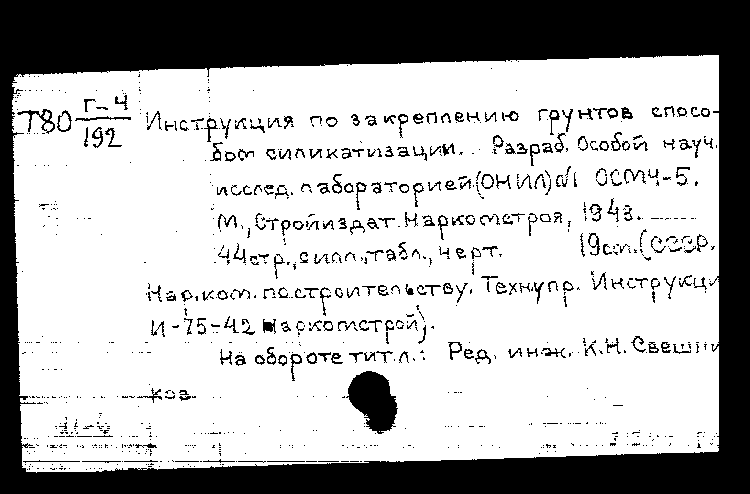 Т80 Г-4/192 Инструкция по закреплению грунтов спосо-
бом силикатизации. Разраб. Особой науч.
исслед. лабораторией (ОНИЛ) №1 ОСМЧ-5.
М., Стройиздат Наркомстроя, 1943.
44стр., с илл., табл., черт. 19см. (СССР.
Нар. ком. по строительству. Технупр. Инструкци
И-75-42 Наркомстрой).
На обороте тит.л.: Ред. инж. К.Н. Свешни
ков